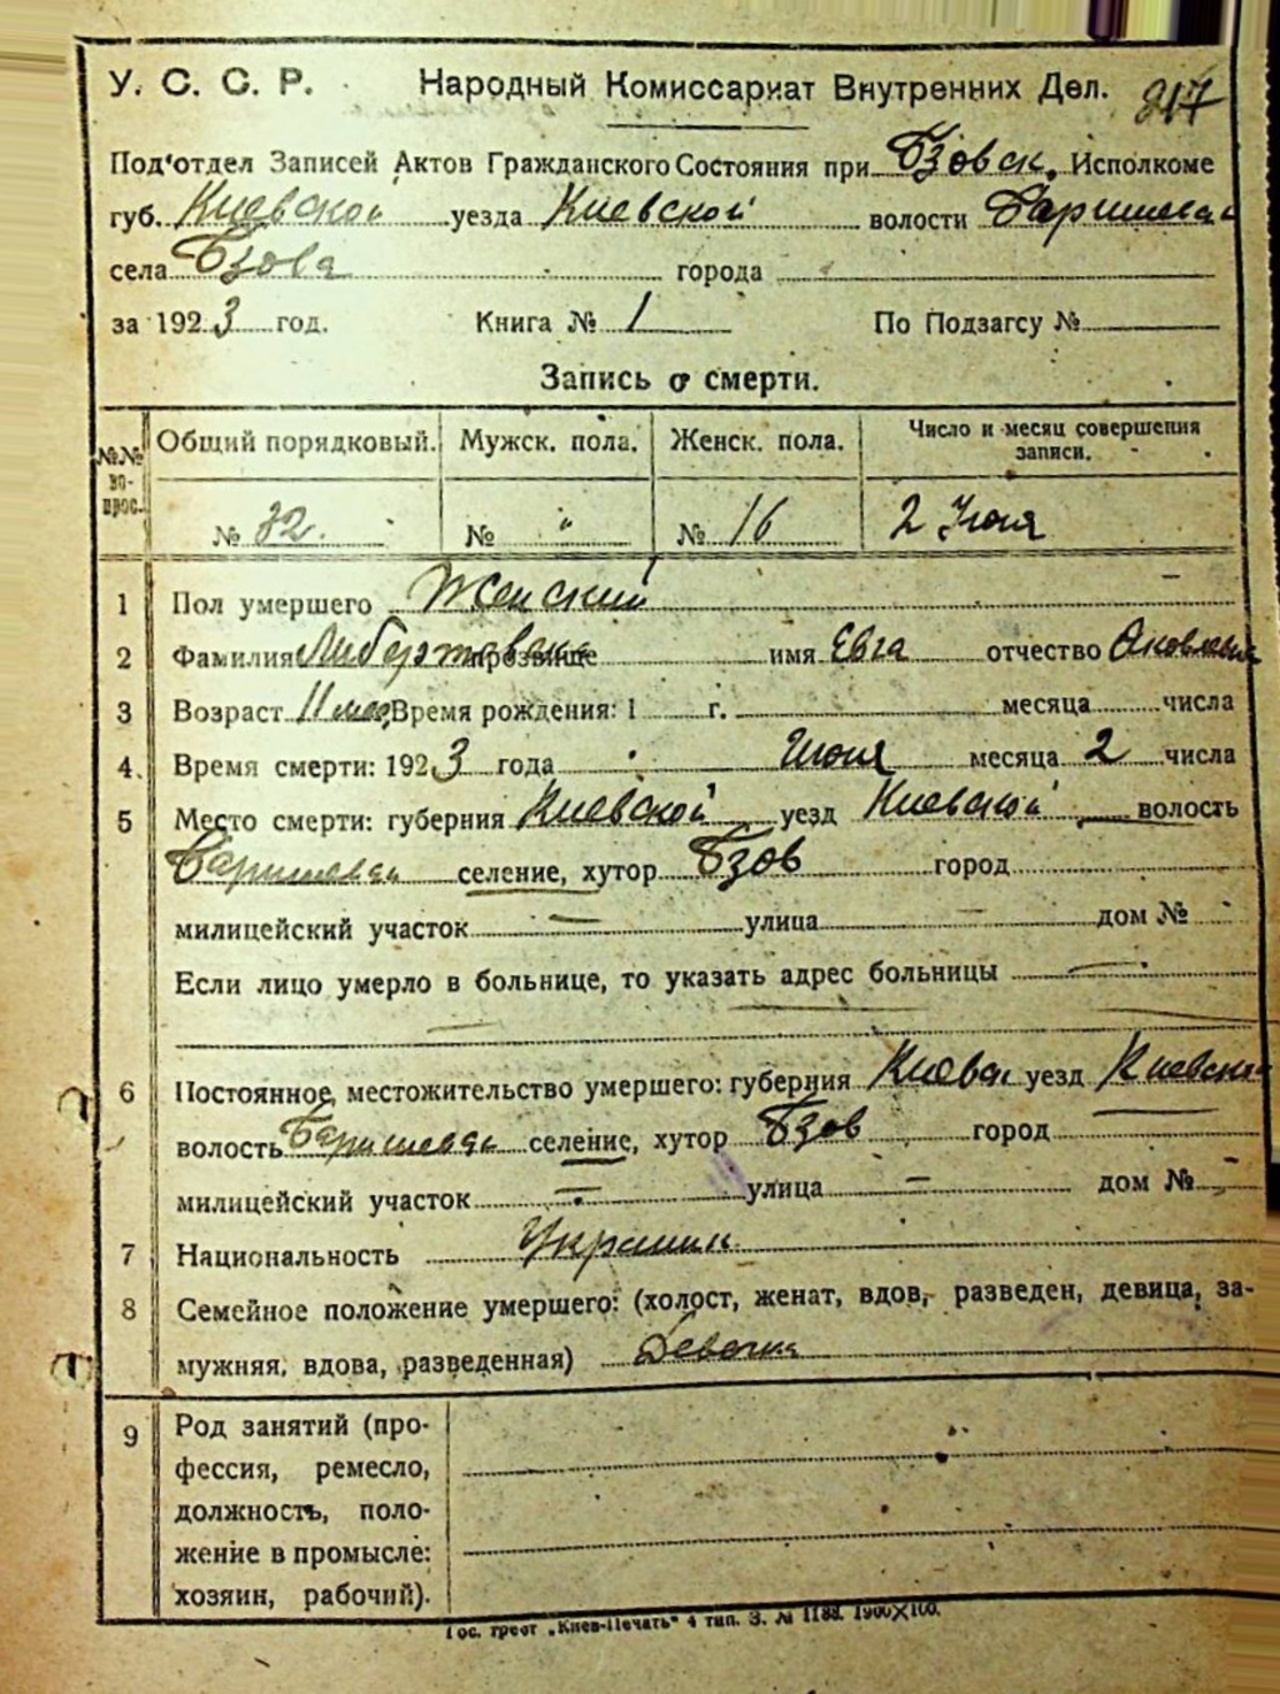 У. С. С. Р. Народный Комиссариат Внутренних Дел. 217
Под'отдел Записей Актов Гражданского Состояния при Бзовск. Исполкоме
губ. Киевской уезда Киевской волости Баришевск
села Бзова города
за 1923 год. Книга № 1 По Подзагсу №
Запись о смерти.
№№ во-прос. Общий порядковый. Мужск. пола. Женск. пола. Число и месяц совершения записи.
№ 32. № " № 16 2 Июня
1 Пол умершего Женский
2 Фамилия прозвище имя Евга отчество Яковлевна
3 Возраст 11 мес. Время рождения: 1 г. месяца числа
4. Время смерти: 1923 года Июня месяца 2 числа
5 Место смерти: губерния Киевской уезд Киевской волость
Баришевск селение, хутор Бзов город
милицейский участок — улица — дом №
Если лицо умерло в больнице, то указать адрес больницы —
6 Постоянное местожительство умершего: губерния Киевск уезд Киевский
волость Баришевск селение, хутор Бзов город
милицейский участок — улица — дом № —
7 Национальность Украинк
8 Семейное положение умершего: (холост, женат, вдов, разведен, девица, за-
мужняя, вдова, разведенная) Девочка
9 Род занятий (про-
фессия, ремесло,
должность, поло-
жение в промысле:
хозяин, рабочий).
Гос. трест „Киев-Печать" 4 тип. З. № 1188. 1900X100.